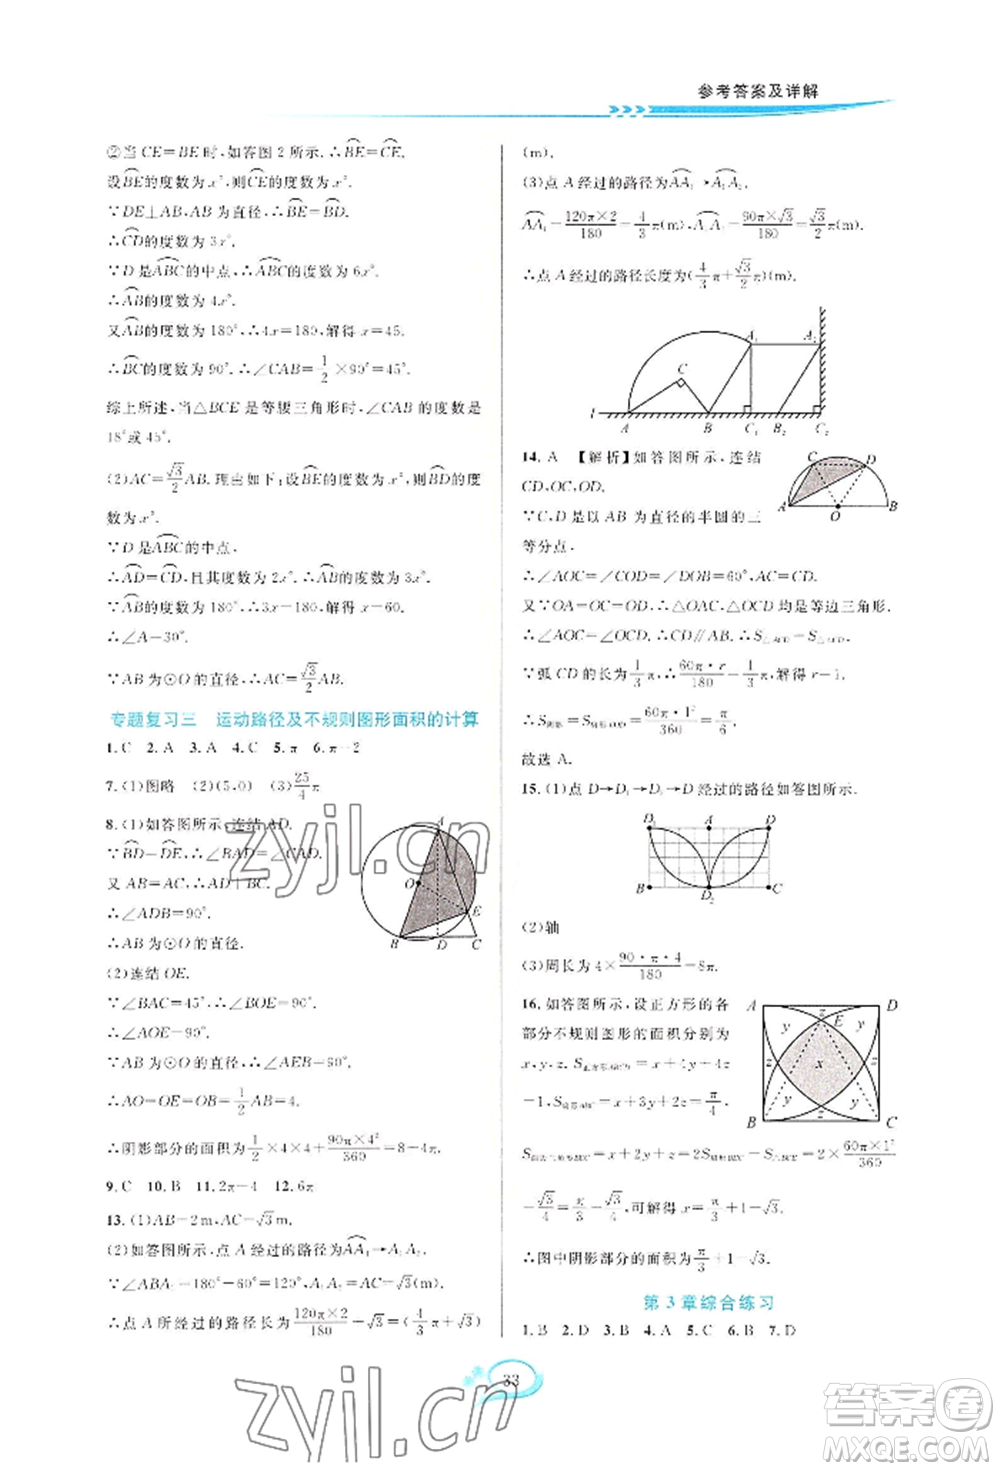 参考答案及详解
②当 CE=BE 时,如答图 2 所示.∴BE=CE.
设BE的度数为 x°,则CE的度数为 x°.
∵DE⊥AB,AB 为直径,∴BE=BD.
∴CD的度数为 3x°.
∵D 是ABC的中点,∴ABC的度数为
∴AB的度数为 4x°.
又AB的度数为 180°,∴4x=180,解得 x=45.
∴BC的度数为 90°.∴∠CAB=1/2×90°=45°.
综上所述,当△BCE 是等腰三角形时,∠CAB 的度数是
18°或 45°.
(2)AC=√3/2 AB.理由如下:设BE的度数为 x°,则BD的度
数为 x°.
∵D 是ABC的中点,
∴AD=CD,且其度数为 2x°.∴AB的度数为 3x°.
又AB的度数为 180°,∴3x=180,解得 x=60.
∴∠A=30°.
∵AB 为⊙O 的直径,∴AC=√3/2 AB.
专题复习三 运动路径及不规则图形面积的计算
1.C 2.A 3.A 4.C 5.π 6.π-2
7.(1)图略 (2)(5,0) (3)25/4 π
8.(1)如答图所示,连结 AD.
∵BD=DE,∴∠BAD=∠CAD.
又 AB=AC,∴AD⊥BC.
∴∠ADB=90°.
∴AB 为⊙O 的直径.
(2)连结 OE.
∵∠BAC=45°,∴∠BOE=90°.
∴∠AOE=90°.
∵AB 为⊙O 的直径,∴∠AEB=90°.
∴AO=OE=OB=1/2 AB=4.
∴阴影部分的面积=1/2×4×4+90π×4²/360=8+4π.
9.C 10.B 11.2π-4 12.6π
13.(1)AB=2 m,AC=√3 m.
(2)如答图所示,点 A 经过的路径为AA₁→A₁A₂.
∵∠ABA₁=180°-60°=120°,A₁A₂=AC=√3(m).
∴点 A 所经过的路径长为120π×2/180+√3=(4/3 π+√3)
(m).
(3)点 A 经过的路径为AA₁→A₁A₂.
AA₁=120π×2/180=4/3 π(m),A₁A₂=90π×√3/180=√3/2 π(m).
∴点 A 经过的路径长度为(4/3 π+√3/2 π)(m).
A₁ A₂
C
l A B C₁ B₂ C₂
14.A 【解析】如答图所示,连结
CD,OC,OD.
∵C,D 是以 AB 为直径的半圆的三
等分点,
∴∠AOC=∠COD=∠BOD=60°,
又∵OA=OC=OD,∴△OAC,△OCD 均是等边三角形.
∴∠AOC=∠OCD.∴CD∥AB.∴S△ACD=S△OCD.
∵弧 CD 的长为1/3 π,∴60π·r/180=1/3 π,解得 r=1.
∴S阴影=S扇形OCD=60π·1²/360=π/6.
故选 A.
C D
A O B
15.(1)点 D→D₁→D₂→D 经过的路径如答图所示.
D₁ A D
B D₂ C
(2)轴
(3)周长为 4×90·π·4/180=8π.
16.如答图所示,设正方形的各
部分不规则图形的面积分别为
x,y,z.S正方形ABCD=x+4y+4z
=1,S扇形ABC=x+3y+2z=π/4,
S曲边三角形BEC=S扇形BEC+S弓形=2×60π×1²/360
-√3/4=π/3-√3/4,可解得 x=π/3+1-√3.
∴图中阴影部分的面积=π/3+1-√3.
A D
z E
y y
z x z
y y
z
B C
A
O
E
B D C
第 3 章综合练习
1.B 2.D 3.B 4.A 5.C 6.B 7.D
33
zyjl.cn
zyjl.cn
答案圈
MXQE.COM